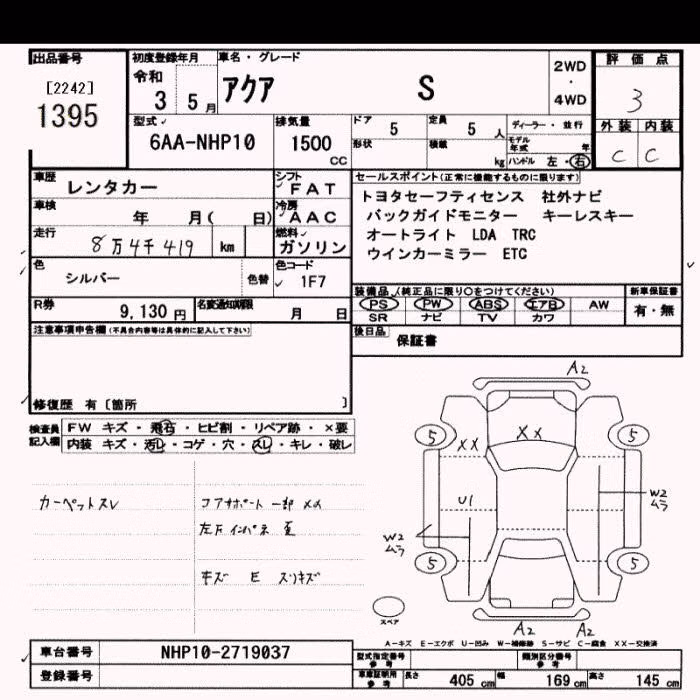 出品番号 初度登録年月 車名・グレード 評価点
[2242] 令和 アクア S 2WD・4WD 3
1395 3 5月
外装 内装
C C
型式 6AA-NHP10
排気量 1500 CC
ドア 5 定員 5 人 ディーラー・並行
形状 積載 kg モデル年式 年
ハンドル 左・右
車歴 レンタカー
シフト FAT
セールスポイント(正常に機能するものに限ります)
車検 年 月( 日)
冷房 AAC
トヨタセーフティセンス 社外ナビ
バックガイドモニター キーレスキー
走行 8万4千419 km
燃料 ガソリン
オートライト LDA TRC
ウインカーミラー ETC
色 シルバー 色替
色コード 1F7
装備品(純正品に限り○をつけてください) 新車保証書
PS PW ABS エアB AW 有・無
SR ナビ TV カワ
R券 9,130円 名変通知期限 月 日
後日品 保証書
注意事項申告欄(不具合内容等は具体的に記入して下さい)
修復歴 有〔箇所 〕
検査員記入欄
FW キズ・飛石・ヒビ割・リペア跡・×要
内装 キズ・汚レ・コゲ・穴・スレ・キレ・破レ
カーペットスレ
コアサポート 一部 XX
左右 インパネ
キズ E スリキズ
A2
5 XX XX 5
U1
W2 ムラ
W2 ムラ
5 5
スペア
A2 A2
A-キズ E-エクボ U-凹み W-補修跡 S-サビ C-腐食 XX-交換済
車台番号 NHP10-2719037
登録番号
型式指定番号 参考
類別区分番号 参考
車庫証明用 参考 長さ 405 cm 幅 169 cm 高さ 145 cm